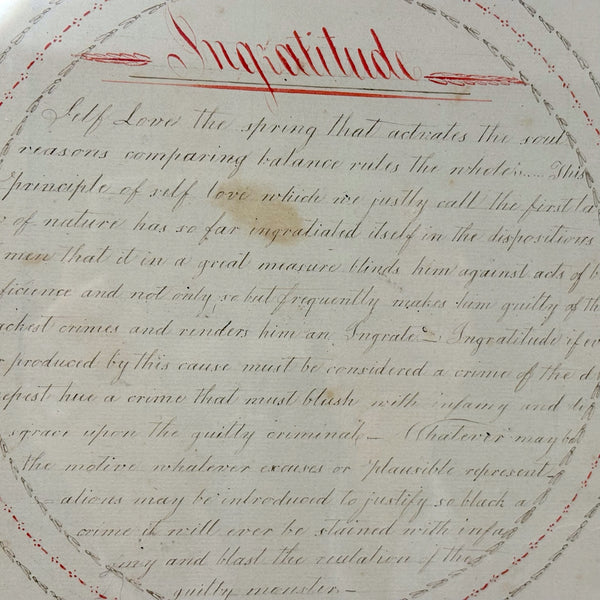 Ingratitude
Self Love the spring that activates the soul
reasons comparing balance rules the whole.... This
principle of self love which we justly call the first la
w of nature has so far ingratiated itself in the dispositions
men that it in a great measure blinds him against acts of b
ficience and not only so but frequently makes him guilty of th
ackest crimes and renders him an Ingrate – Ingratitude if ev
r produced by this cause must be considered a crime of the d
eepest hue a crime that must blush with infamy and di
sgrace upon the guilty criminal – Whatever may be
the motive whatever excuses or plausible represent
ations may be introduced to justify so black a
crime it will ever be stained with infa
my and blast the of the
guilty monster –